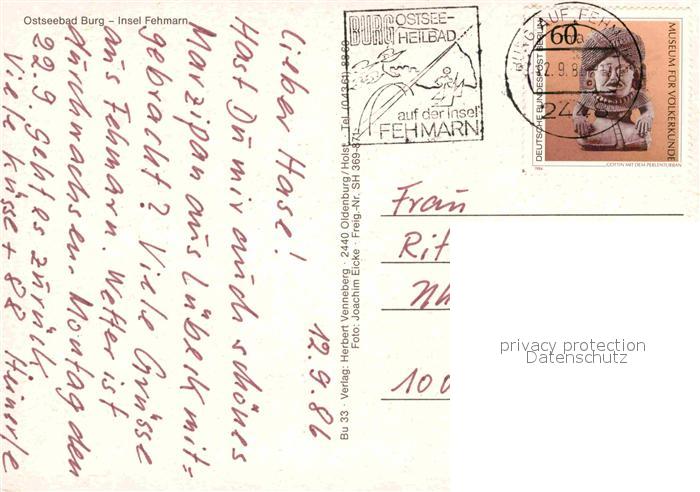 Ostseebad Burg – Insel Fehmarn
12.9.86
Lieber Hase!
Hast Du mir auch schönes
Marzipan aus Lübeck mit=
gebracht? Viele Grüsse
aus Fehmarn. Wetter ist
durchwachsen. Montag den
22.9. geht es zurück
Viele Küsse +
Bu 33 · Verlag: Herbert Venneberg · 2440 Oldenburg/Holst. · Tel. (04361)
Foto: Joachim Eicke · Freig.-Nr. SH 369-871
BURG OSTSEE-
HEILBAD
auf der Insel
FEHMARN
BURG AUF FEHM
2.9.8
24
60
DEUTSCHE BUNDESPOST BERLIN
MUSEUM FÜR VÖLKERKUNDE
GÖTTIN MIT DEM PERLENTURBAN
1984
Frau
Rit
100
privacy protection
Datenschutz